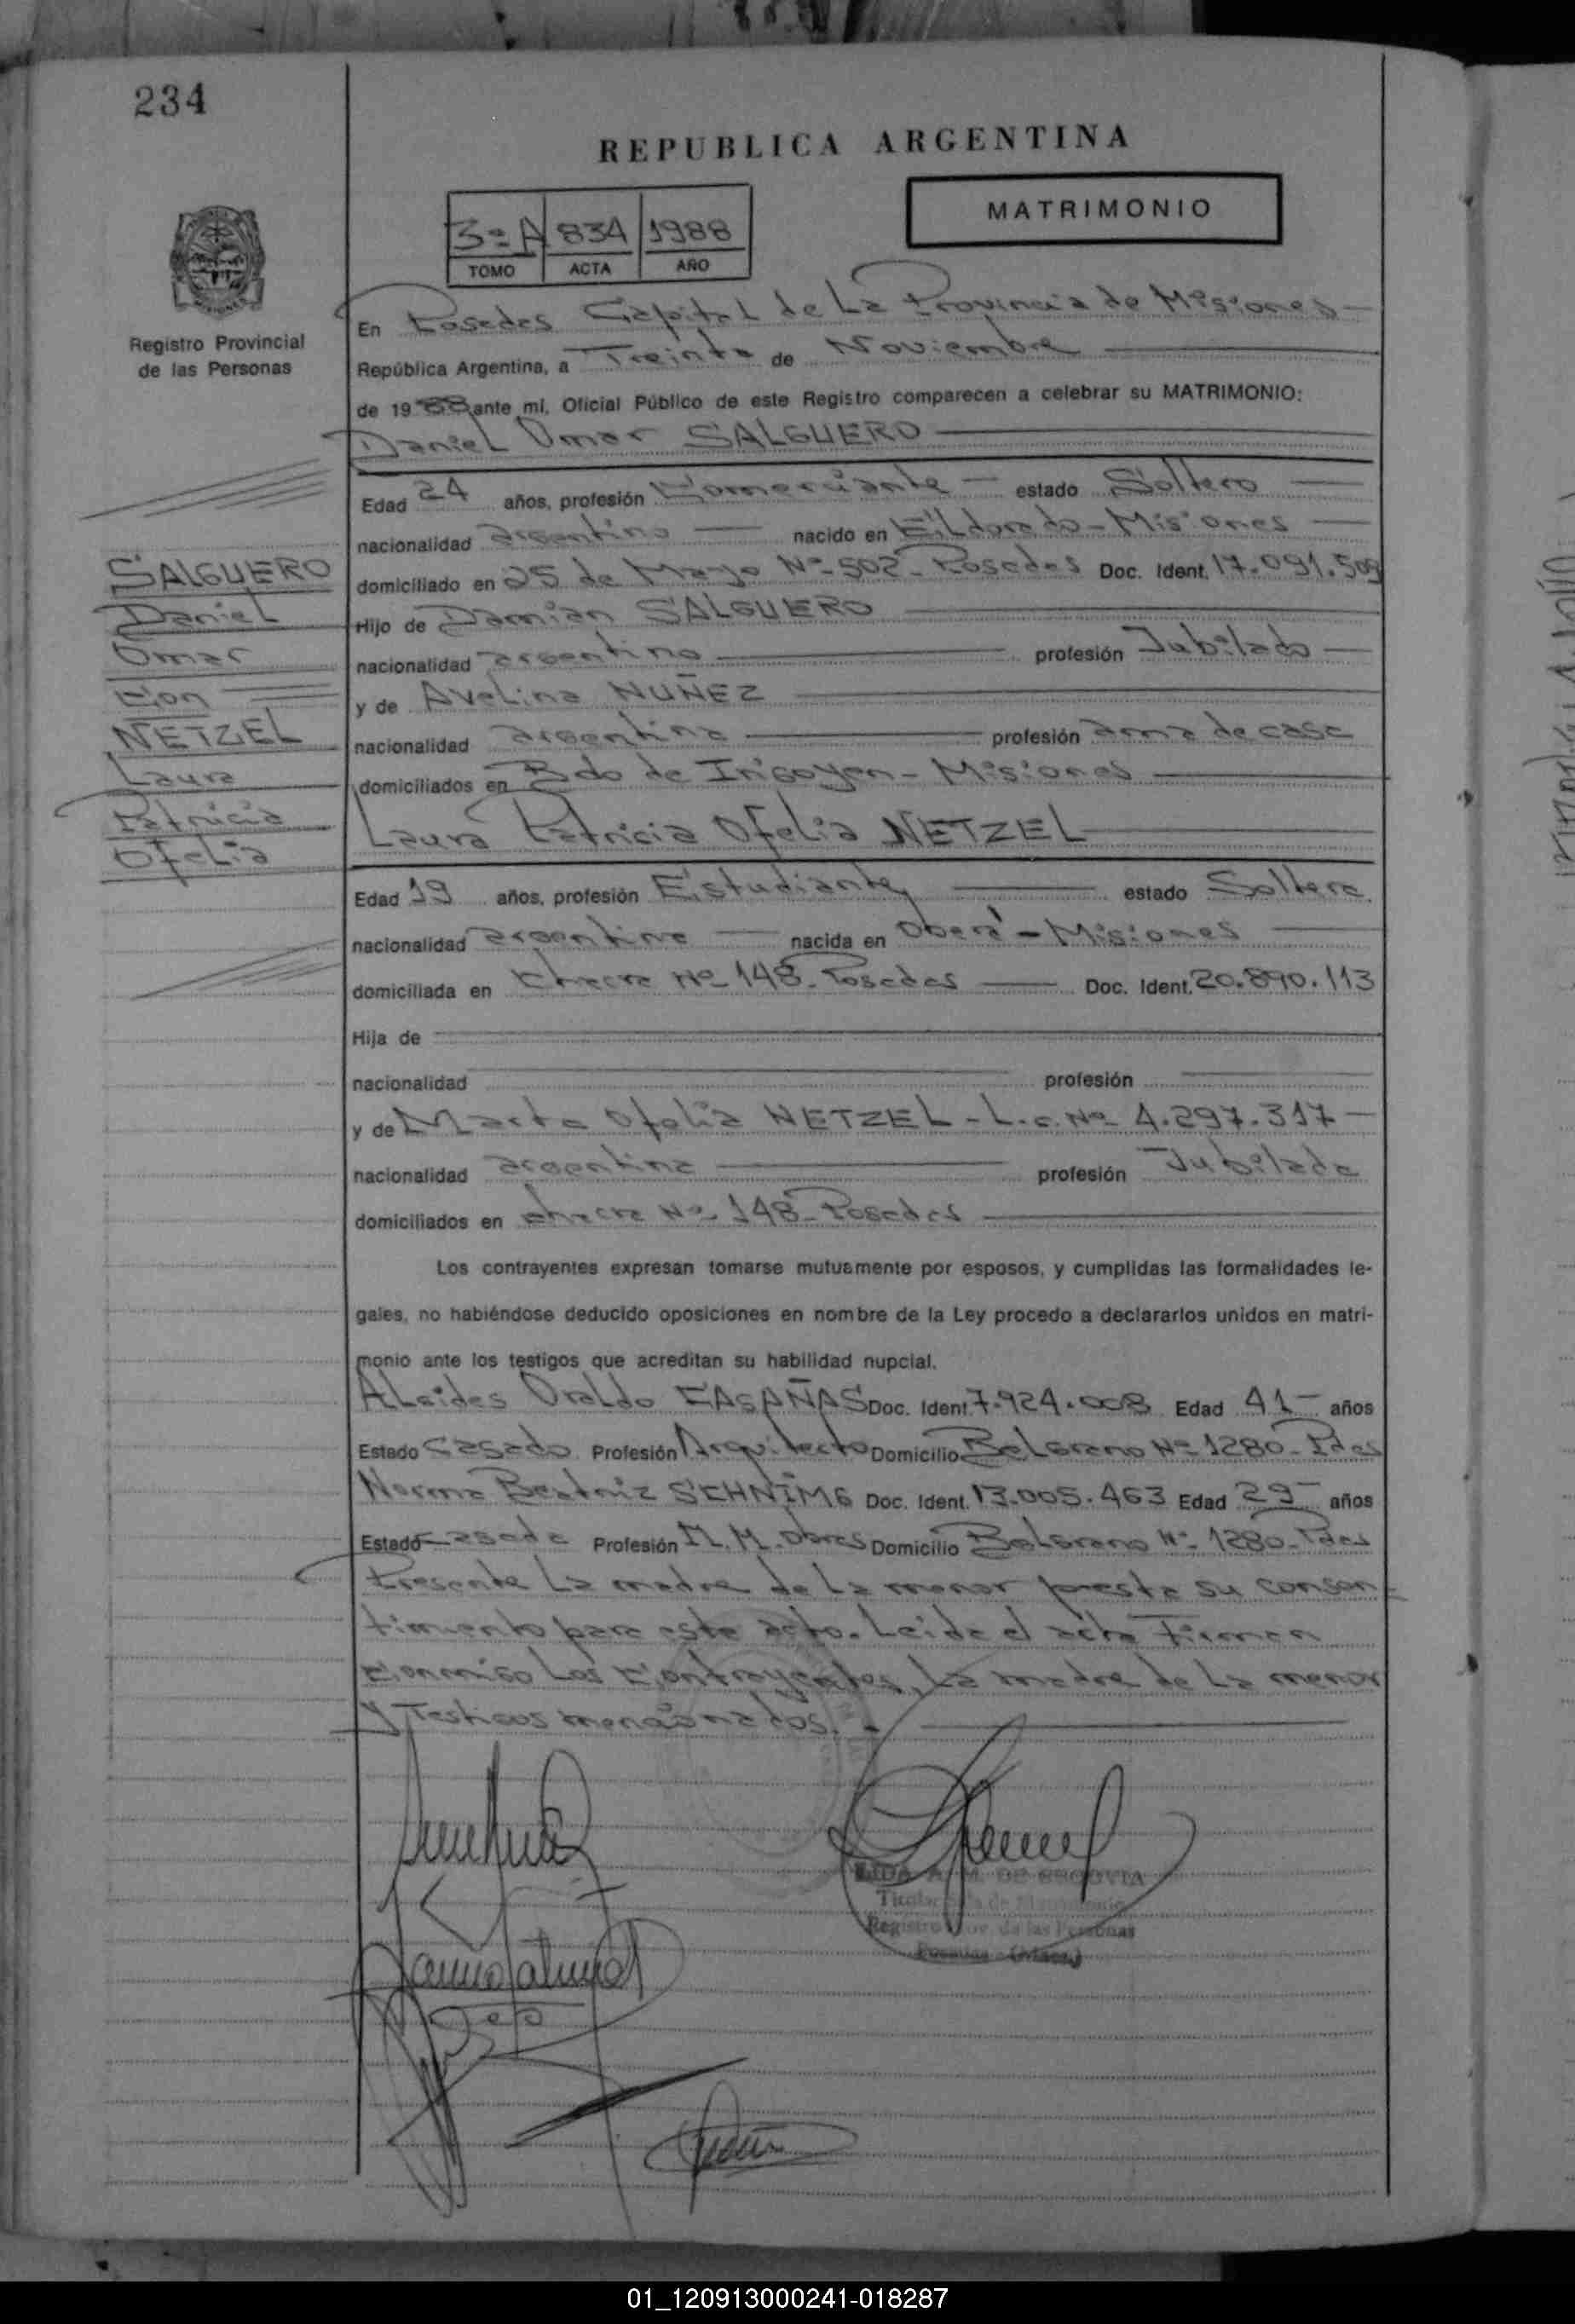 234
REPUBLICA ARGENTINA
3º A 834 1988
TOMO ACTA AÑO
MATRIMONIO
Registro Provincial
de las Personas
En Posadas Capital de La Provincia de Misiones
República Argentina, a Treinta de Noviembre
de 1988 ante mi, Oficial Público de este Registro comparecen a celebrar su MATRIMONIO:
Daniel Omar SALGUERO
Edad 24 años, profesión Comerciante estado Soltero
nacionalidad argentino nacido en Eldorado - Misiones
domiciliado en 25 de Mayo Nº 502 - Posadas Doc. Ident. 17.091.509
Hijo de Damián SALGUERO
nacionalidad argentino profesión Jubilado
y de Avelina NUÑEZ
nacionalidad argentina profesión ama de casa
domiciliados en Bdo de Irigoyen - Misiones
SALGUERO
Daniel
Omar
Con
NETZEL
Laura
Patricia
Ofelia
Laura Patricia Ofelia NETZEL
Edad 19 años, profesión Estudiante estado Soltera
nacionalidad argentina nacida en Oberá - Misiones
domiciliada en Chacra Nº 148 - Posadas Doc. Ident. 20.890.113
Hija de
nacionalidad profesión
y de Marta Ofelia NETZEL - L.c. Nº 4.297.317
nacionalidad argentina profesión Jubilada
domiciliados en chacra Nº 148 - Posadas
Los contrayentes expresan tomarse mutuamente por esposos, y cumplidas las formalidades le-
gales, no habiéndose deducido oposiciones en nombre de la Ley procedo a declararlos unidos en matri-
monio ante los testigos que acreditan su habilidad nupcial.
Alcides Oraldo CASAÑAS Doc. Ident. 7.924.008 Edad 41 años
Estado Casado Profesión Arquitecto Domicilio Belgrano Nº 1280 - Pdas
Norma Beatriz SCHNIMG Doc. Ident. 13.005.463 Edad 29 años
Estado Casada Profesión M. M. Obras Domicilio Belgrano Nº 1280 - Pdas
Presente La madre de La menor presta su consen-
timiento para este acto. Leída el acta Firman
Conmigo Los Contrayentes, La madre de La menor
y Testigos mencionados. -
LIDA A. M. DE SEGOVIA
Registro Prov. de las Personas
Posadas (Mnes.)
01_120913000241-018287